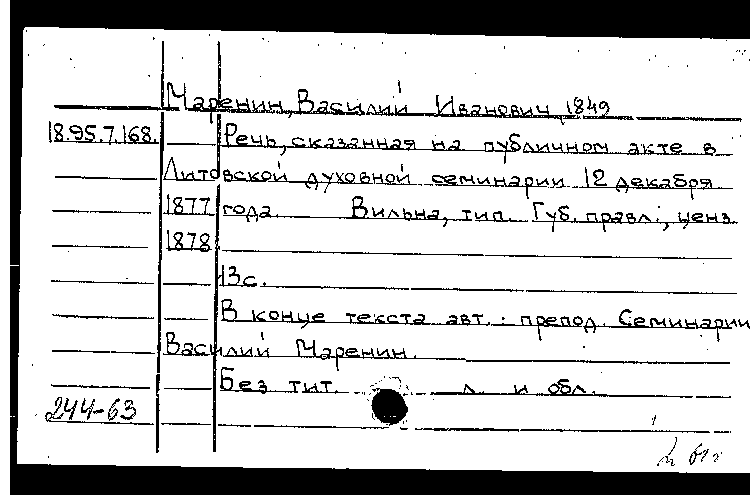 Маренин, Василий Иванович, 1849
18.95.7.168. Речь, сказанная на публичном акте в
Литовской духовной семинарии 12 декабря
1877 года. Вильна, тип. Губ. правл., ценз.
1878
13 с.
В конце текста авт.: препод. Семинарии
Василий Маренин.
Без тит. л. и обл.
244-63